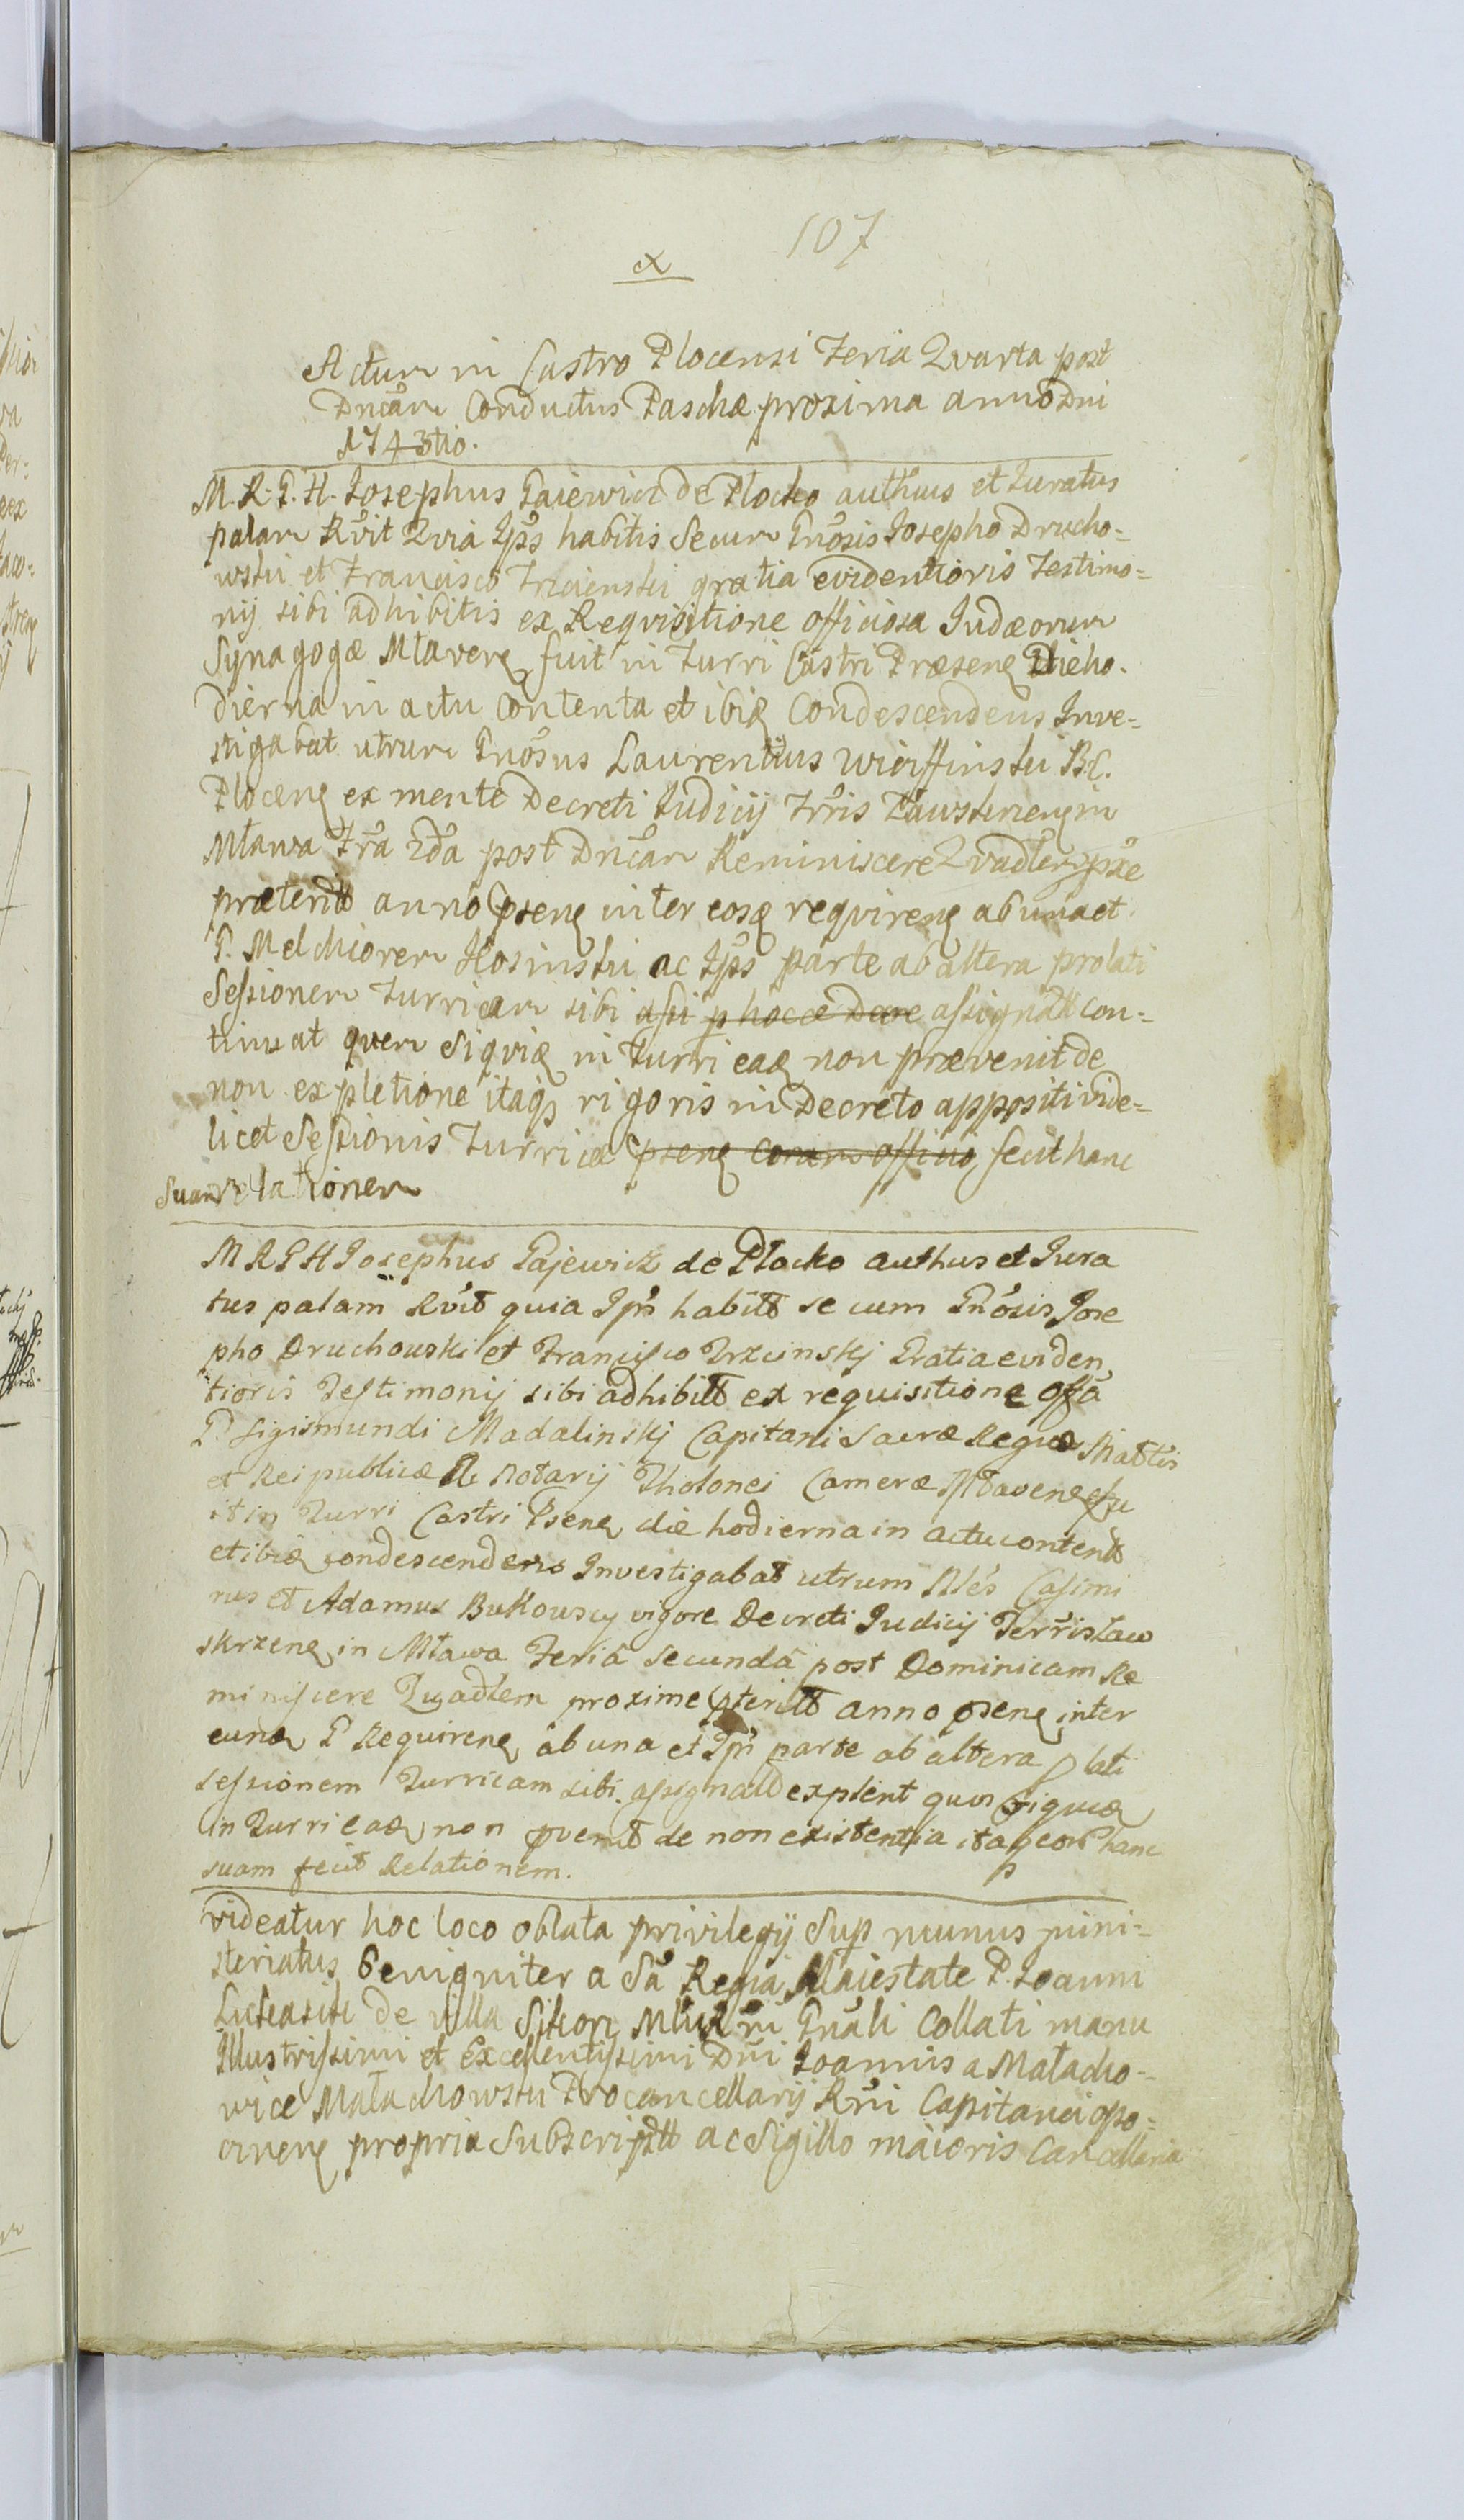 107
x
Actum in Castro Plocensi Feria Qvarta post
Dncam Conductus Paschæ proxima anno Dni
1743tio.
M. R. G. H. Josephus Gaiewicz de Płocko authus et Juratus
palam Rvit Qvia Ips habitis Secum Gnosis Josepho Drucho=
wski et Francisco Trzcienski gratia evidentioris Testimo=
nij sibi adhibitis ex Reqvisitione officiosa Judæorum
Synagogæ Mlaven fuit in Turri Castri Præsen Die ho-
dierna in actu contenta et ibiq Condescendens Inve=
stigabat utrum Gnosus Laurentius B.C.
Plocen ex mente Decreti Judicij Trris Zawskrinen in
Mława Fra 2da post Dncam Reminiscere Qvadlem pxe
præteritt anno psen inter eosq reqviren ab una et
G. Melchiorem Kosinski ac Ips parte ab altera prolati
Sessionem Turricam sibi assi p hocce Decre assignatt con=
tinuat qvem Siqviq in Turri eaq non prævenit de
non expletione itaqs rigoris in Decreto appositi vide=
licet Sessionis Turricæ psen coram officio, fecit hanc
suam relationem
M R G H Josephus Gajewicz de Płocko authus et Jura
tus palam Rvit quia Ips habitt se cum Gnosis Jose
pho Druchouski et Francisco Trzcinskj Gratia eviden
tioris Testimonij sibi adhibitt ex requisitione offa
G. Sigismundi Madalinskj Capitani Sacræ Regiæ Mattis
et Reipublicæ Notarij Tholonei Cameræ Mlaven fu
it in Turri Castri Psen die hodierna in actu contentt
et ibiq condescendens Investigabat utrum Casimi
rus et Adamus Bukouscy vigore Decreti Judicij Terris Zaw
skrzen in Mława Feria Secunda post Dominicam Re
miniscere Quadlem proxime pteritt anno psen inter
eunq G Requiren ab una et Ips parte ab altera plati
sessionem Turricam sibi assignatt explent quos Siquiq
in Turri eaq non pvenit de non existentia itaq eor hanc
suam fecit Relationem.
videatur hoc loco oblata privilegij Sup munus mini=
steriatus benigniter a Sa Regia Maiestate P. Joanni
de villa Gnali Collati manu
Illustrissimi et Excellentissimi Dni Joannis a Małacho-
wice Małachowski Procancellarij Rni Capitanei opo=
cinen propria Subscriptt ac Sigillo maioris Cancellaria